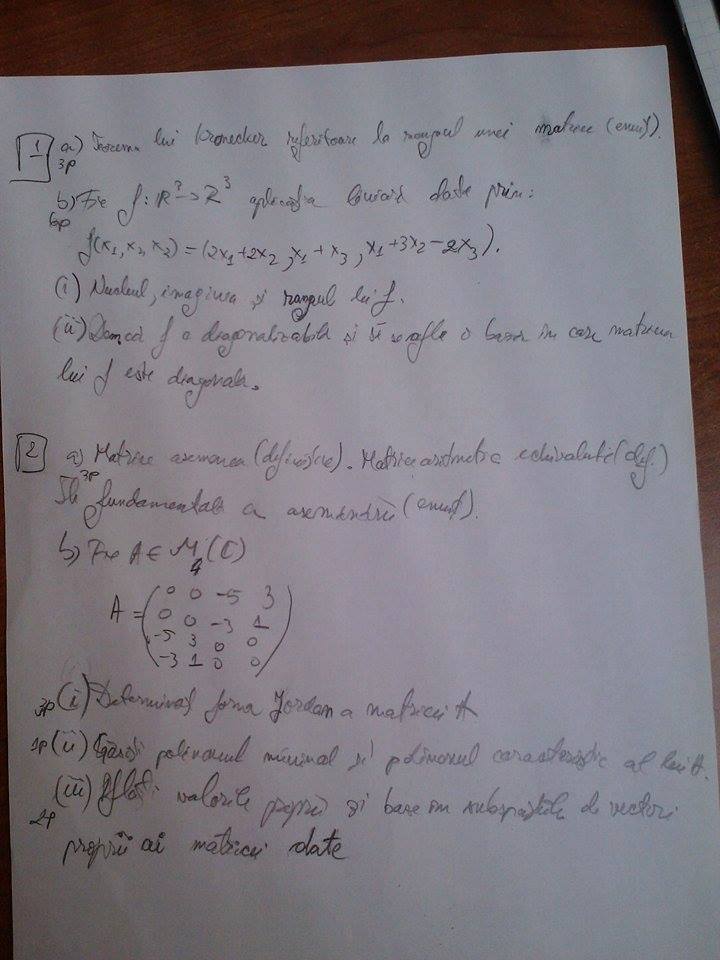 1 a) Teorema lui Kronecker referitoare la rangul unei matrice (enunț).
3p
b) Fie f: R³ → R³ aplicația liniară dată prin:
6p
f(x₁, x₂, x₂) = (2x₁+2x₂, x₁+x₃, x₁+3x₂-2x₃).
(i) Nucleul, imaginea și rangul lui f.
(ii) Dem că f e diagonalizabilă și să se afle o bază în care matricea
lui f este diagonală.
2 a) Matrice asemenea (definiție). Matrice aritmetic echivalente (def.)
3p
fundamentală a asemănării (enunț).
b) Fie A ∈ M₄(C)
A = ( 0 0 -5 3
0 0 -3 1
-5 3 0 0
-3 1 0 0 )
3p (i) Determinați forma Jordan a matricii A
1p (ii) Găsiți polinomul minimal și polinomul caracteristic al lui A.
(iii) Aflați valorile proprii și baze în subspațiile de vectori
2p
proprii ai matricii date